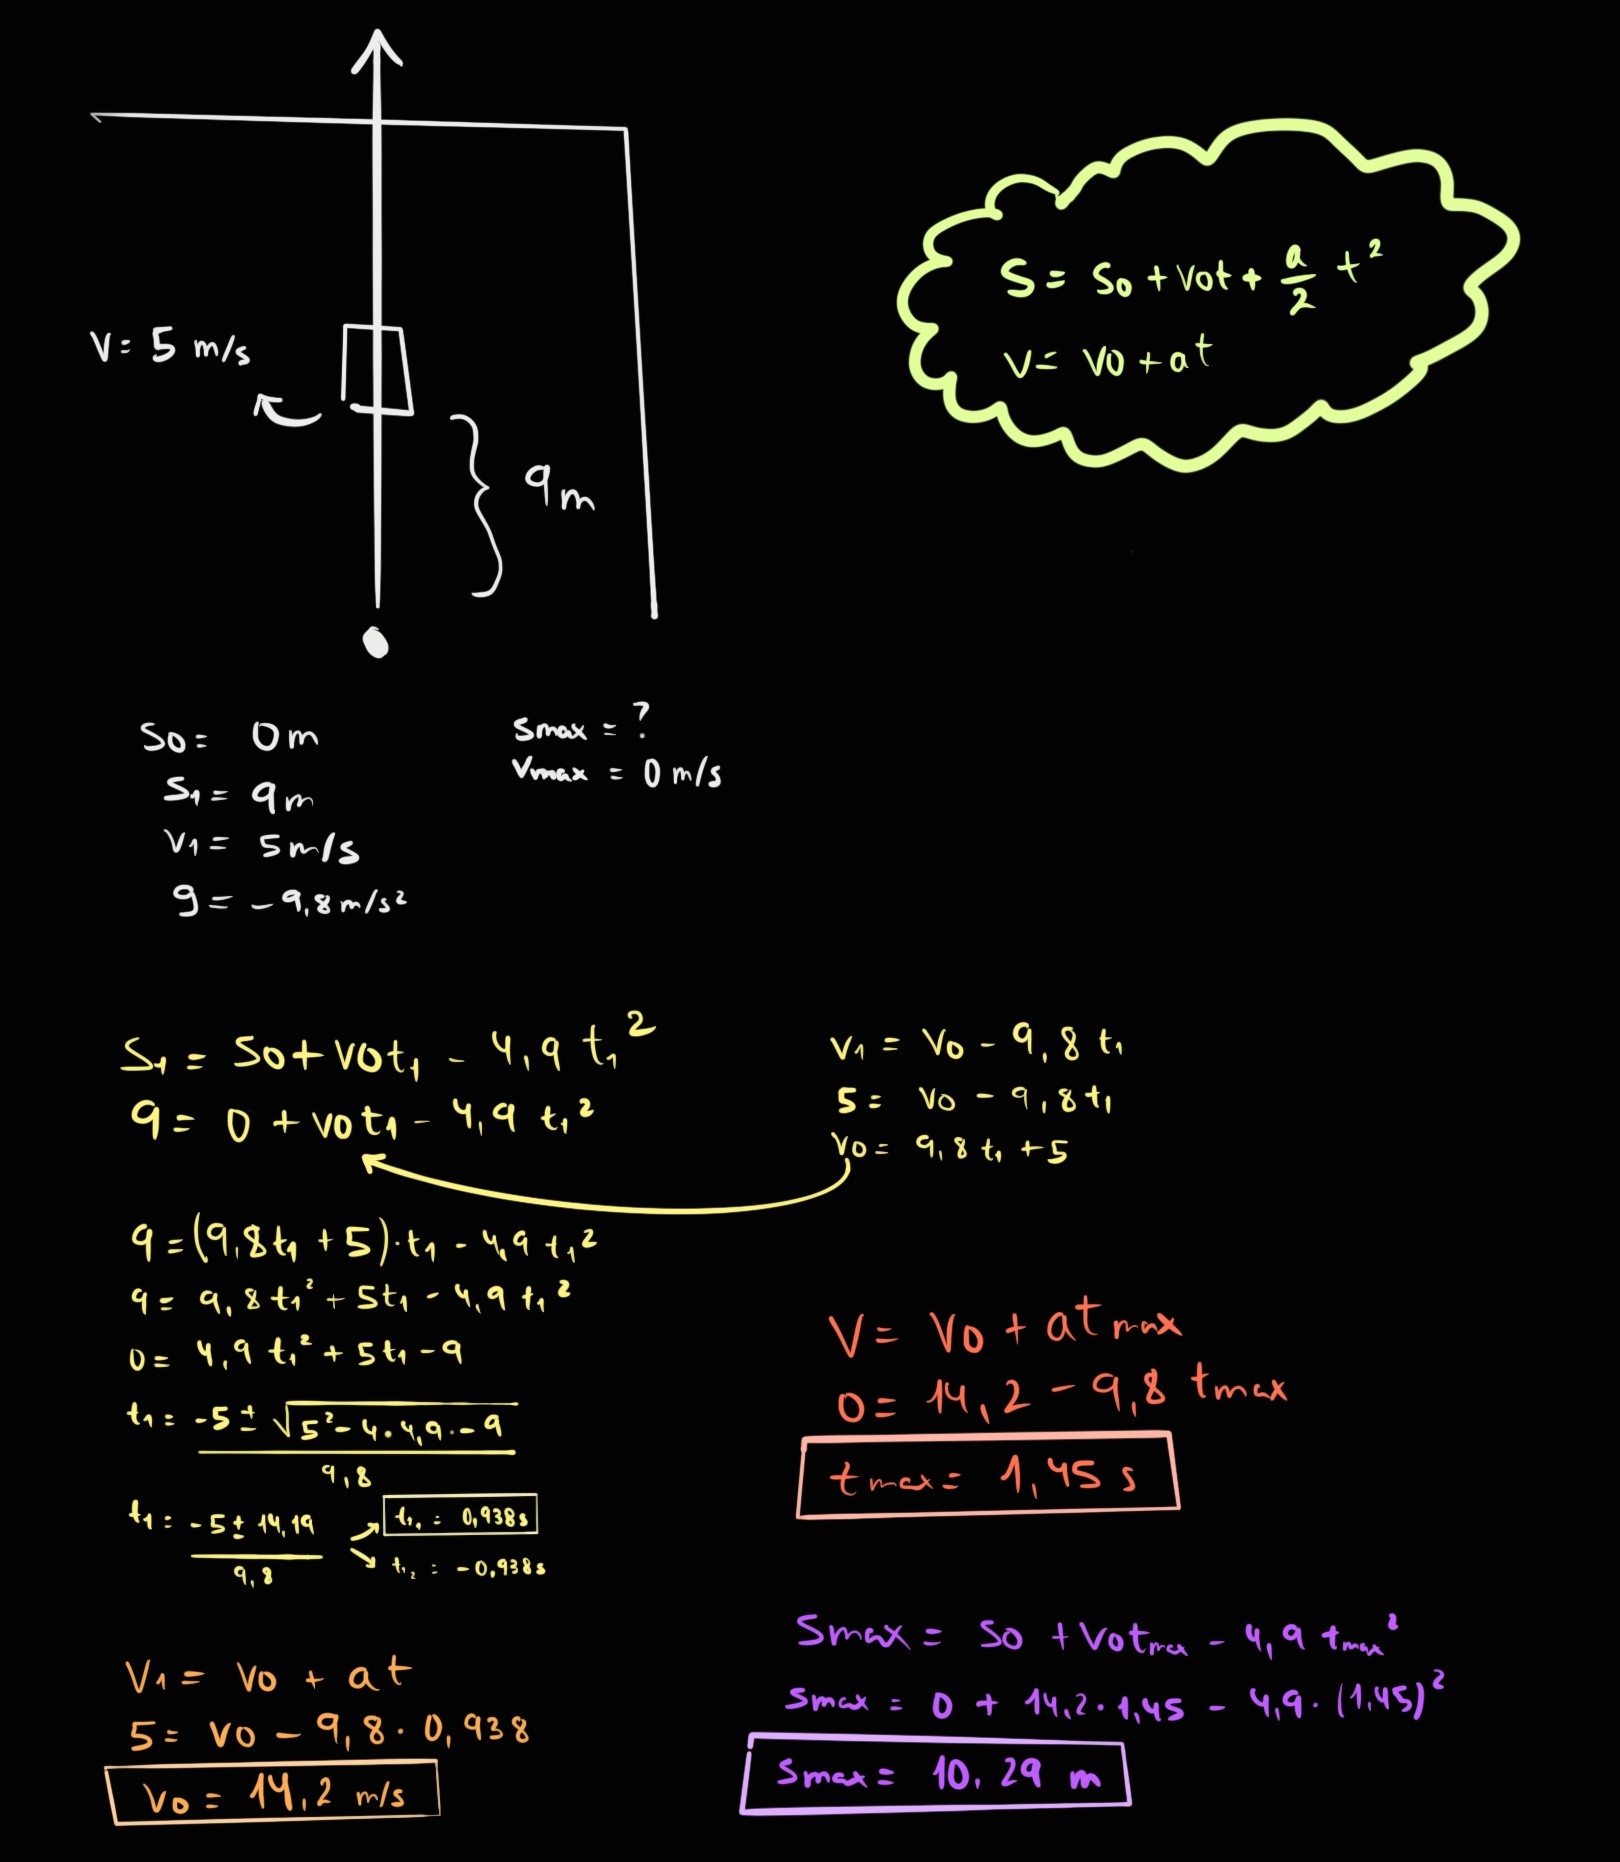 V= 5 m/s
9m
S= So + Vot + a/2 t²
V= Vo + at
So= 0m
S₁= 9m
V₁= 5m/s
g= -9,8m/s²
Smax = ?
Vmax = 0 m/s
S₁ = So + Vot₁ - 4,9 t₁²
9= 0 + Vot₁ - 4,9 t₁²
V₁ = Vo - 9,8 t₁
5= Vo - 9,8t₁
Vo= 9,8 t₁ +5
9=(9,8t₁ +5)·t₁ - 4,9 t₁²
9= 9,8 t₁² + 5t₁ - 4,9 t₁²
0= 4,9 t₁² + 5t₁ - 9
t₁= -5 ± √5²-4·4,9·-9
9,8
t₁= -5 ± 14,19
9,8
t₁₁= 0,938s
t₁₂ = -0,938s
V₁= Vo + at
5= Vo - 9,8·0,938
Vo= 14,2 m/s
V= Vo + at max
0= 14,2 - 9,8 tmax
tmax= 1,45 s
Smax = So + Votmax - 4,9 tmax²
Smax = 0 + 14,2·1,45 - 4,9·(1,45)²
Smax= 10,29 m